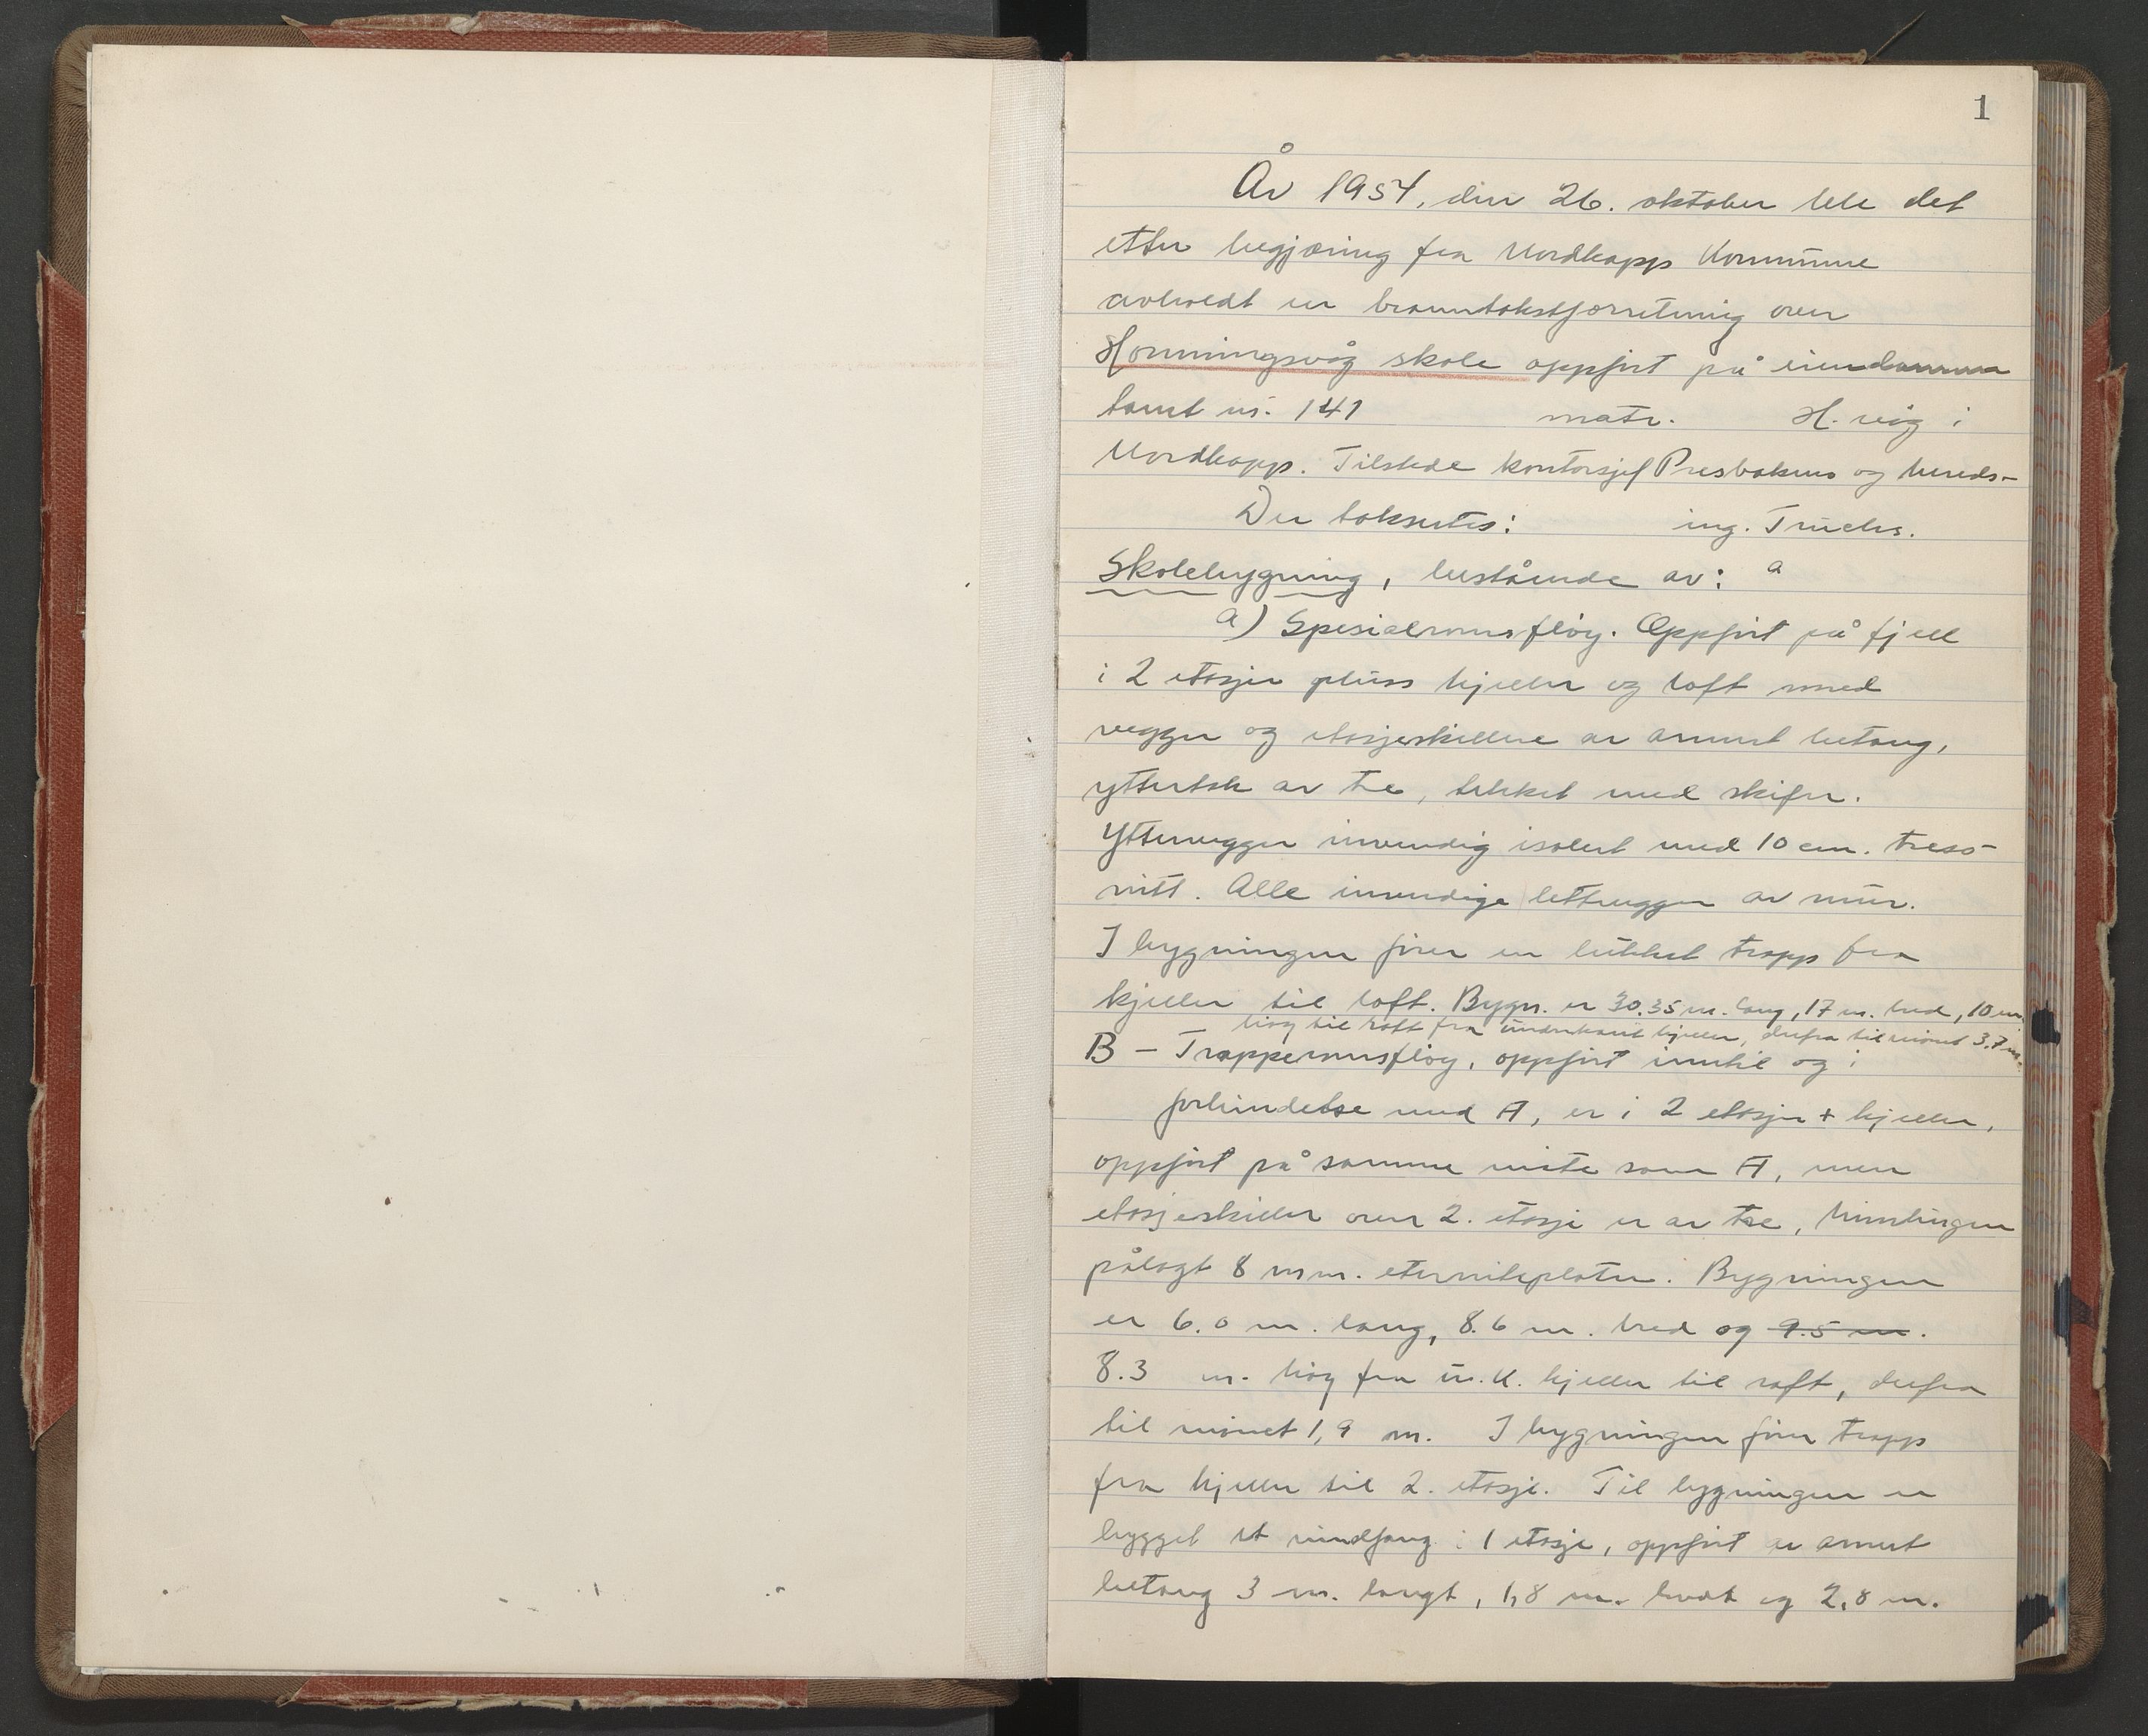 1
År 1954, den 26. oktober ble det
etter begjæring fra Nordkapp Kommune
avholdt en branntakstforretning over
Honningsvåg skole oppført på eiendommen
tomt nr. 141 matr. H. våg i
Nordkapp. Tilstede kontorsjef Presbakmo og hereds-
Der takseres: ing.
Skolebygning, bestående av: a
a) Spesialromsfløy. Oppført på fjell
i 2 etasjer pluss kjeller og loft med
vegger og etasjeskillere av armert betong,
yttertak av tre, tekket med skifer.
Yttervegger innvendig isolert med 10 cm. tress-
nitt. Alle innvendige lettvegger av mur.
I bygningen fører en lukket trapp fra
kjeller til loft. Bygn. er 30.35 m. lang, 17 m. bred, 10 m.
høy til raft fra underkant kjeller, derfra til mønet 3.7 m.
B – Trapperomsfløy, oppført inntil og i
forbindelse med A, er i 2 etasjer + kjeller,
oppført på samme måte som A, men
etasjeskiller over 2. etasje er av tre, himlingen
pålagt 8 mm. eternitplater. Bygningen
er 6.0 m. lang, 8.6 m. bred og 9.5 m.
8.3 m. høy fra u.k. kjeller til raft, derfra
til mønet 1,9 m. I bygningen fører trapp
fra kjeller til 2. etasje. Til bygningen er
bygget et vindfang i 1 etasje, oppført av armert
betong 3 m. langt, 1,8 m. bredt og 2,8 m.